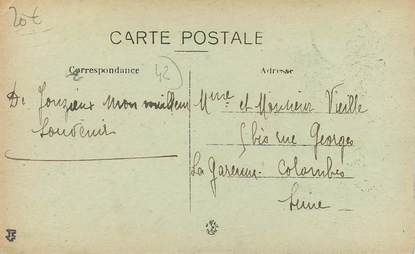 20€
CARTE POSTALE
Correspondance
42
Adresse
De Jonzieux mon meilleur
souvenir
Mme et Monsieur Vieille
5 bis rue Georges
La Garenne-Colombes
Seine